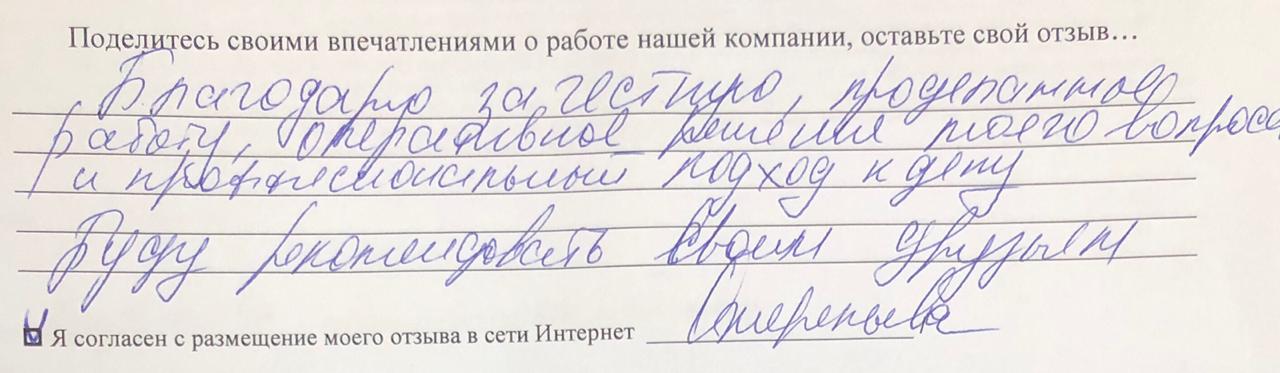 Поделитесь своими впечатлениями о работе нашей компании, оставьте свой отзыв...
Благодарю за честную, проделанною
работу, оперативное решения моего вопроса
и профессиональный подход к делу
Буду рекомендовать своим друзьям
Я согласен с размещение моего отзыва в сети Интернет